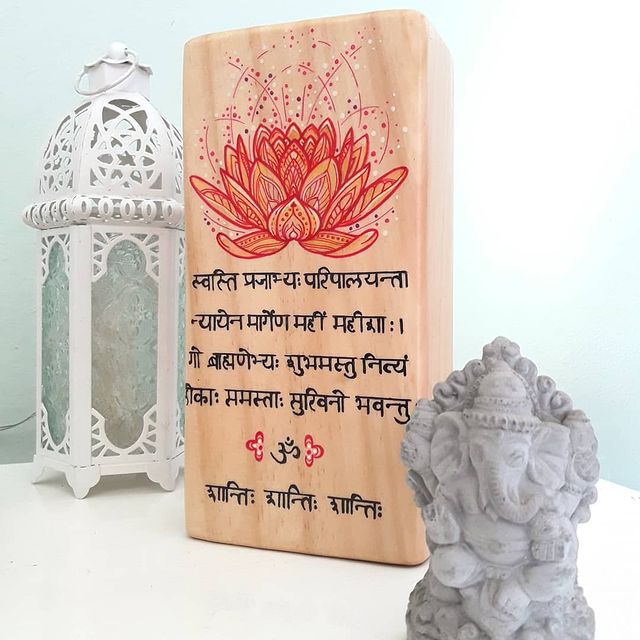 स्वस्ति प्रजाभ्यः परिपालयन्ता
न्यायेन मार्गेण महीं महीशाः।
गो ब्राह्मणेभ्यः शुभमस्तु नित्यं
लोकाः समस्ताः सुखिनो भवन्तु
ॐ
शान्तिः शान्तिः शान्तिः